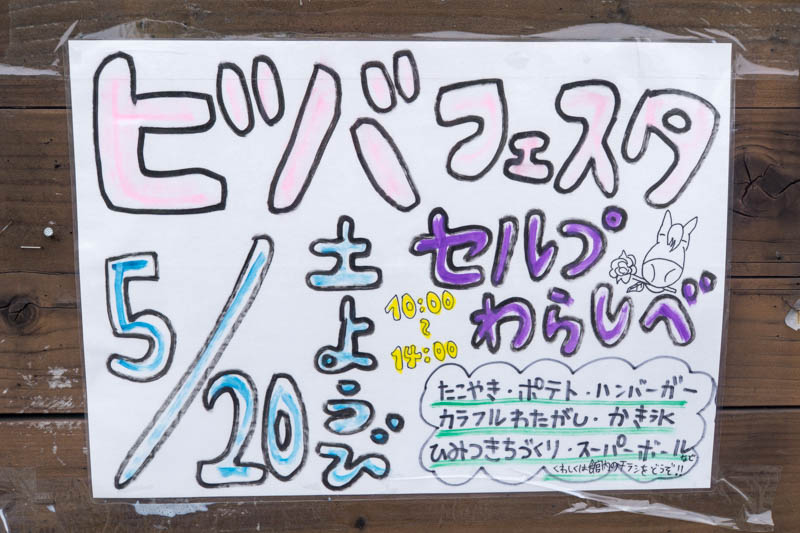 ビバフェスタ
5/20
土ようび
セルプ
わらしべ
10:00
~
14:00
たこやき・ポテト・ハンバーガー
カラフルわたがし・かき氷
ひみつきちづくり・スーパーボールなど
くわしくは館内のチラシをどうぞ!!